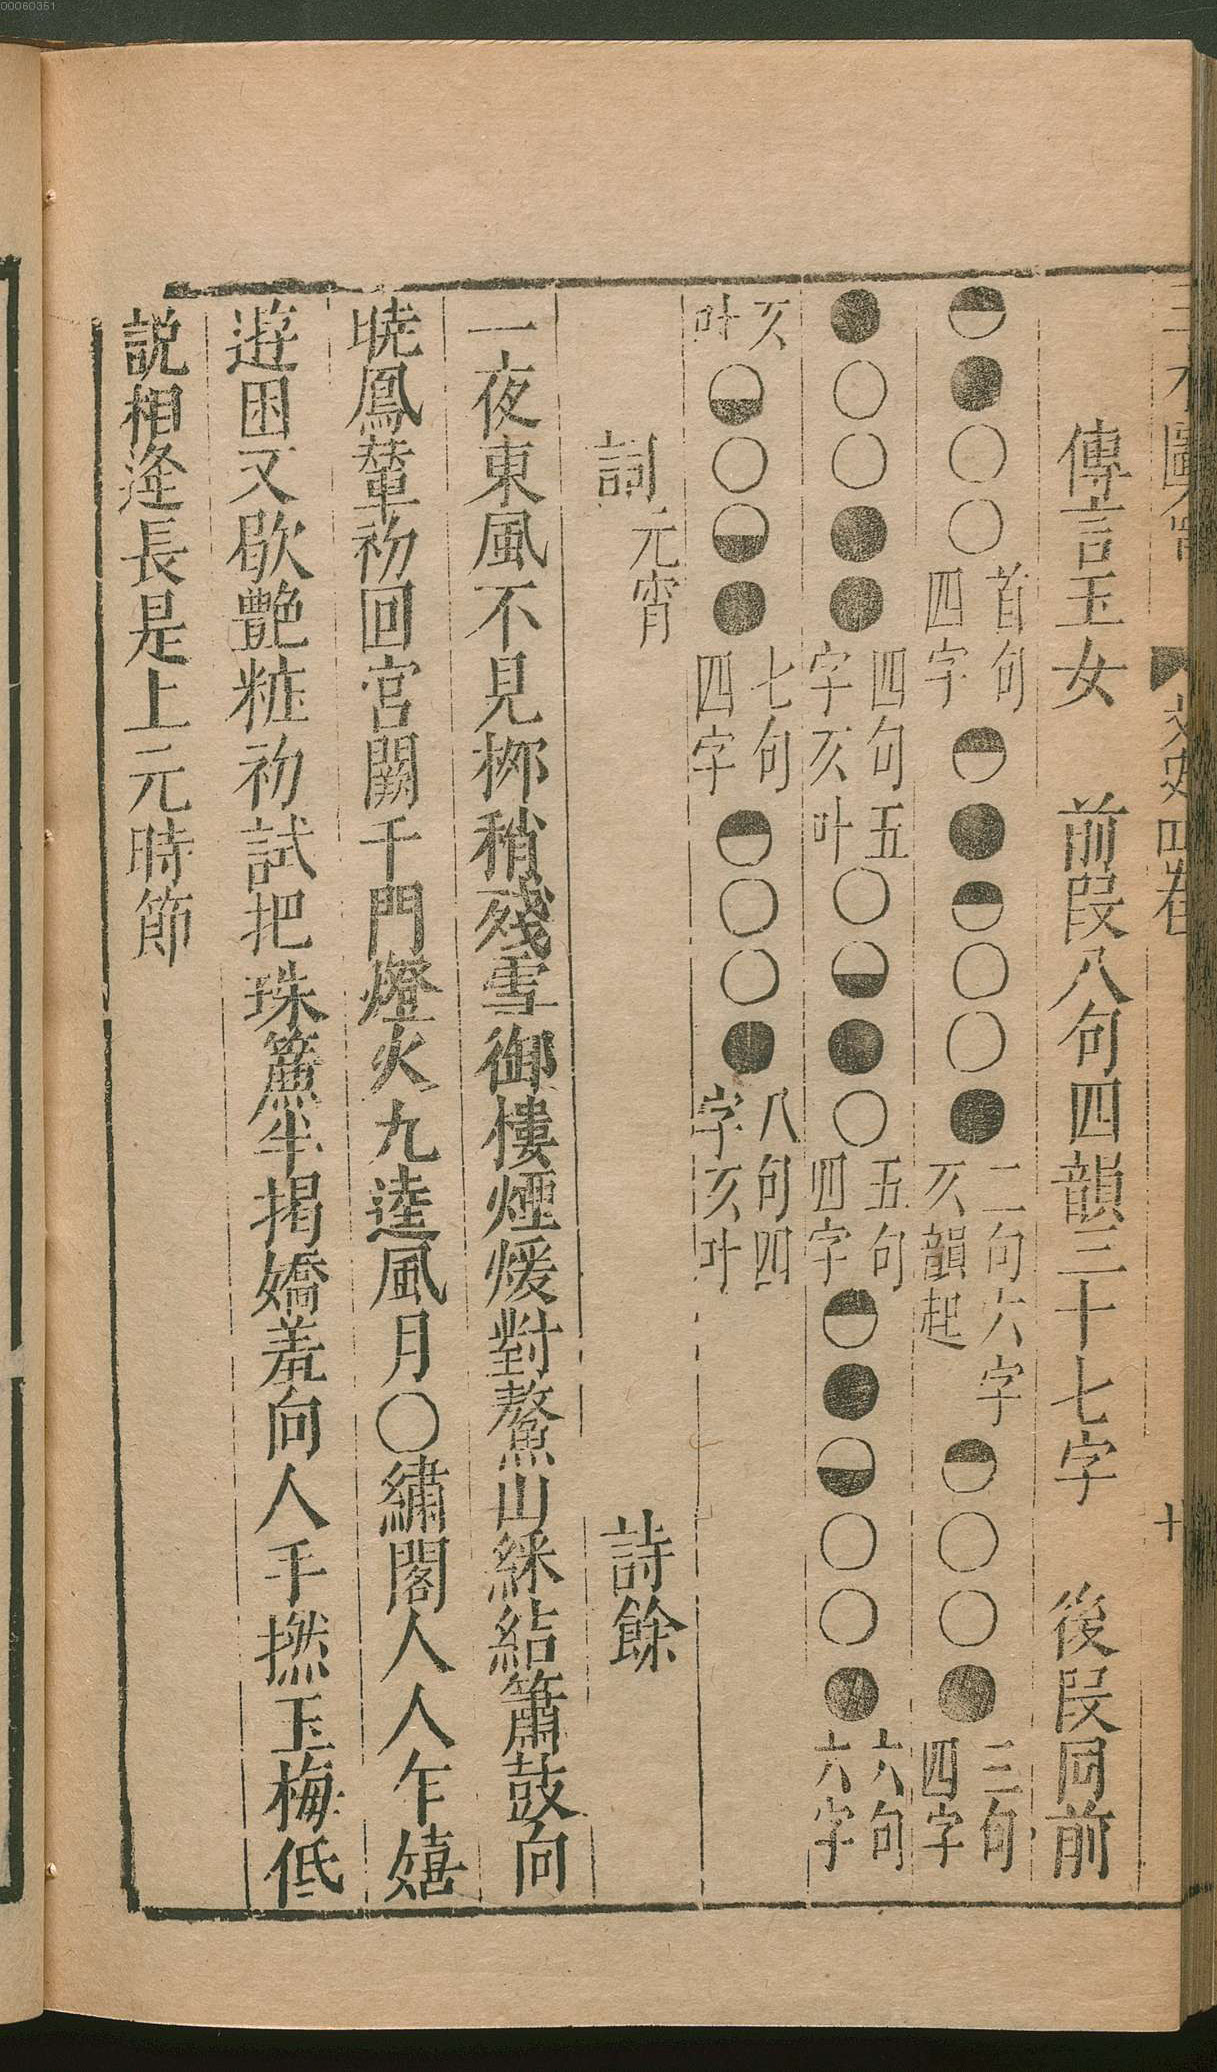 00060351
三才圖會 文史四卷 十
傳言玉女 前段八句四韻三十七字 後段同前
◓●○○首句四字◓●◓○○●二句六字仄韻起◓○○●三句四字
●○○●●四句五字仄叶○◒●○五句四字◓●◒○○●六句六字
仄叶◒○◒●七句四字◓○○●八句四字仄叶
詞元宵 詩餘
一夜東風不見桺稍殘雪御樓煙煖對鰲山綵結簫鼓向
曉鳳輦初回宮闕千門燈火九逵風月○繡閣人人乍嬉
遊困又歇艷粧初試把珠簾半揭嬌羞向人手撚玉梅低
說相逢長是上元時節